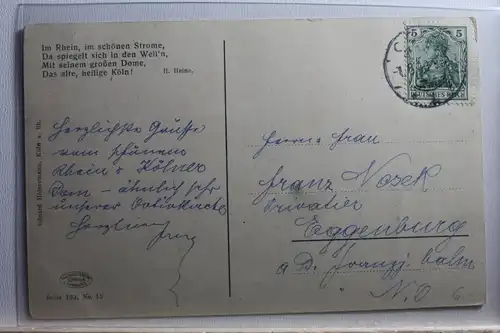 Im Rhein, im schönen Strome,
Da spiegelt sich in den Well'n,
Mit seinem großen Dome,
Das alte, heilige Köln! H. Heine.
Herzlichste Grüße
vom schönen
Rhein u. Kölner
Dom - ähnlich sehr
unserer
Herzlinnen
Franz
Serie 193, No. 12
5 5
DEUTSCHES REICH
Herrn Frau
Franz Nosek
Privatier
Eggenburg
a. D. Franz j. bahn
N.Ö